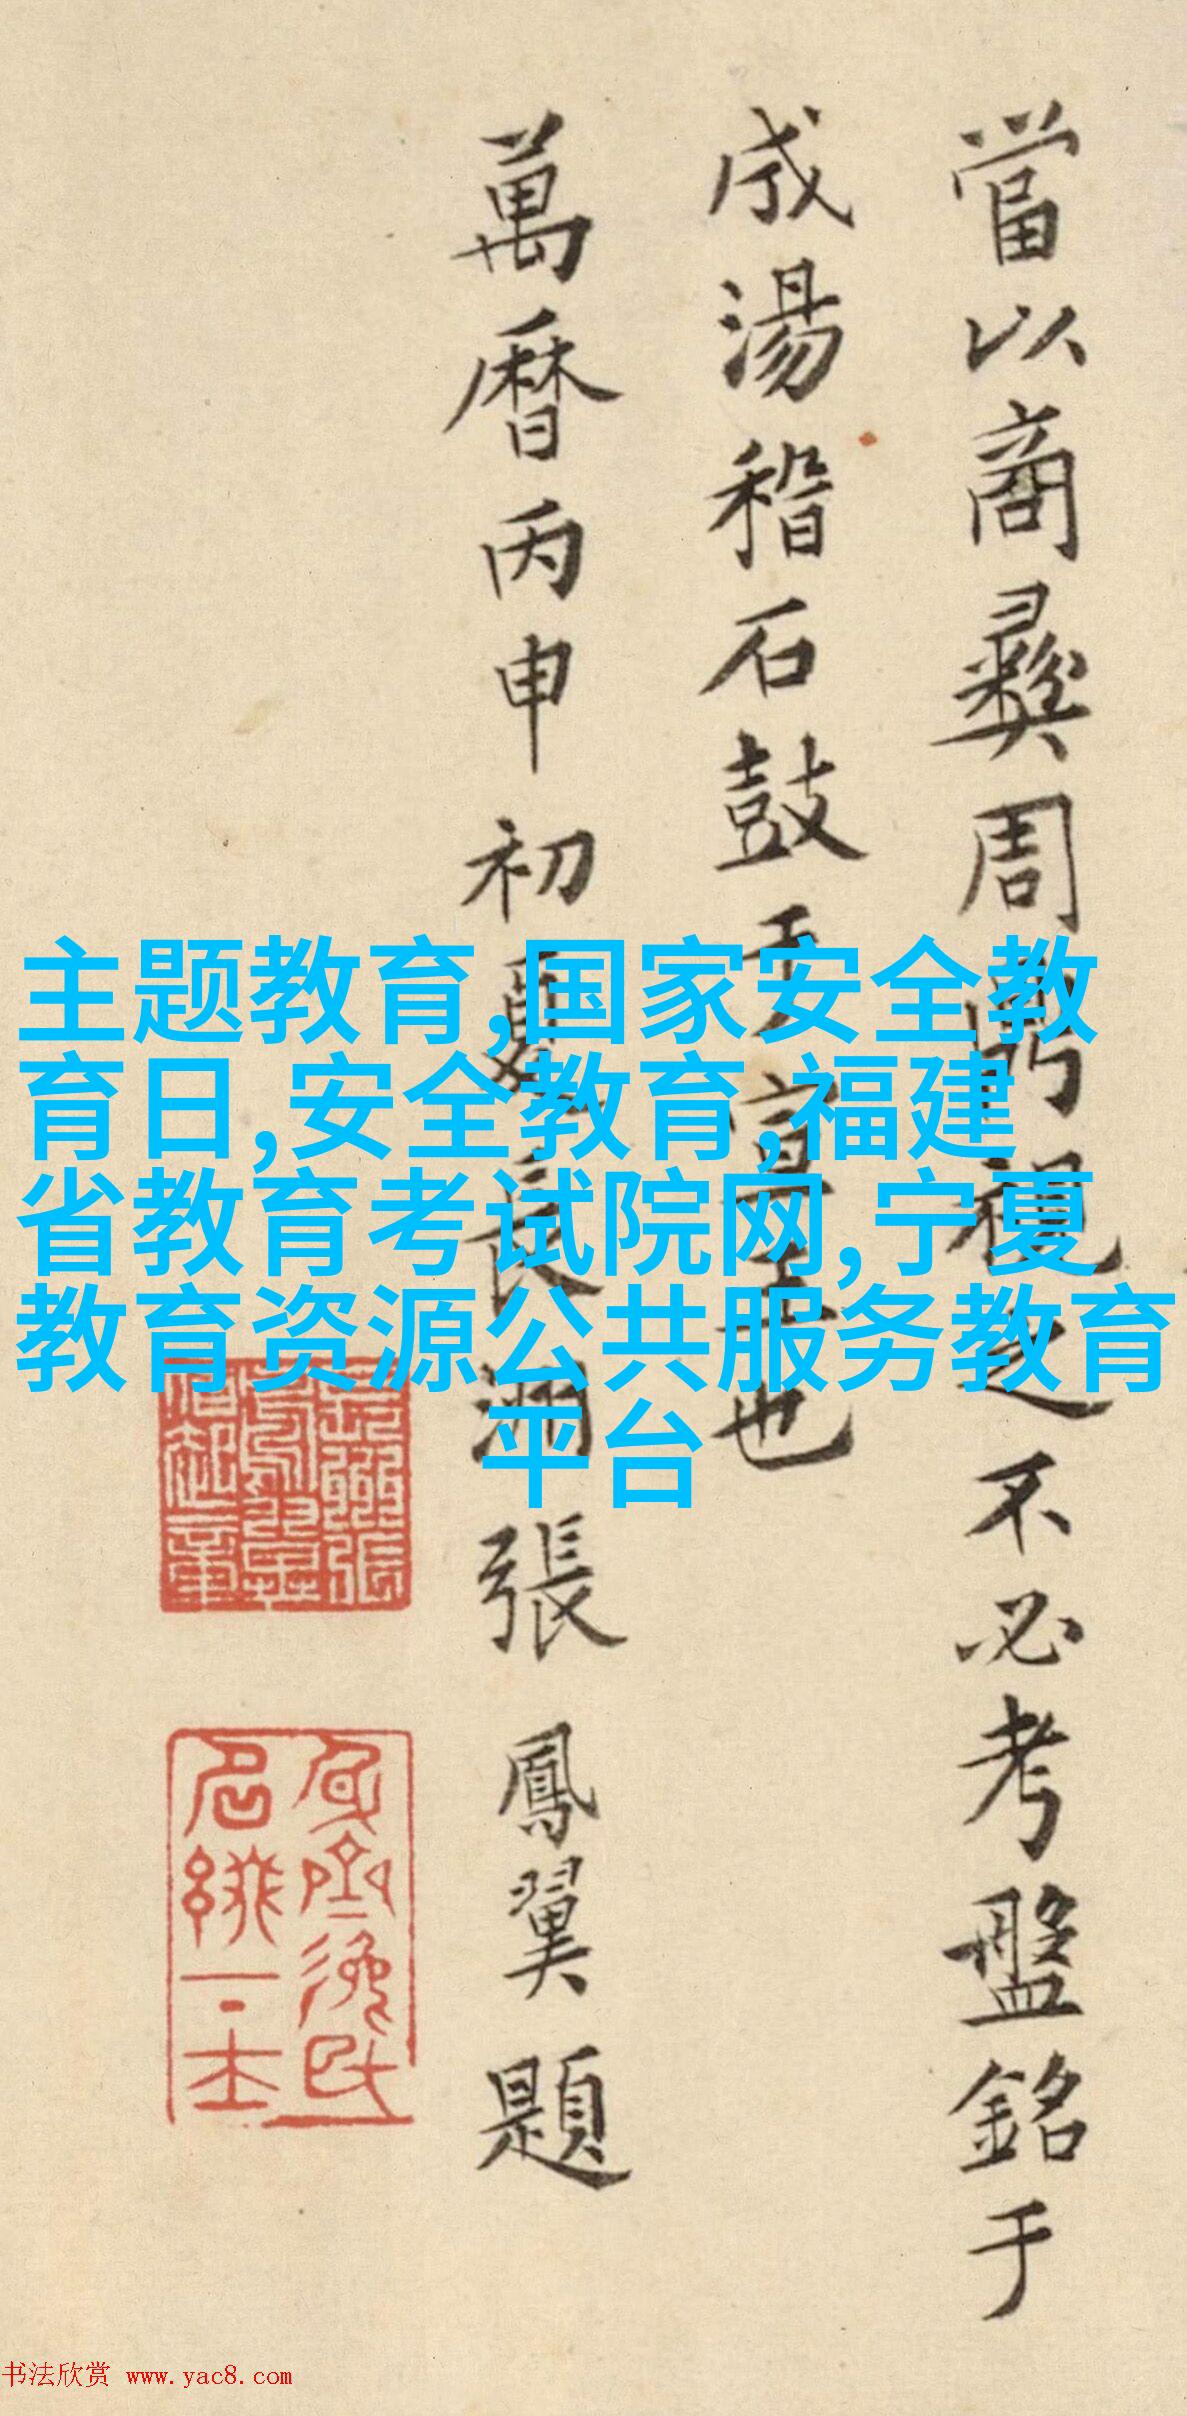 當以商彝周鼎視之不必考盤銘于
成湯稽石鼓于宣王也
萬曆丙申初夏長洲張鳳翼題
主题教育,国家安全教
育日,安全教育,福建
省教育考试院网,宁夏
教育资源公共服务教育
平台
书法欣赏 www.yac8.com